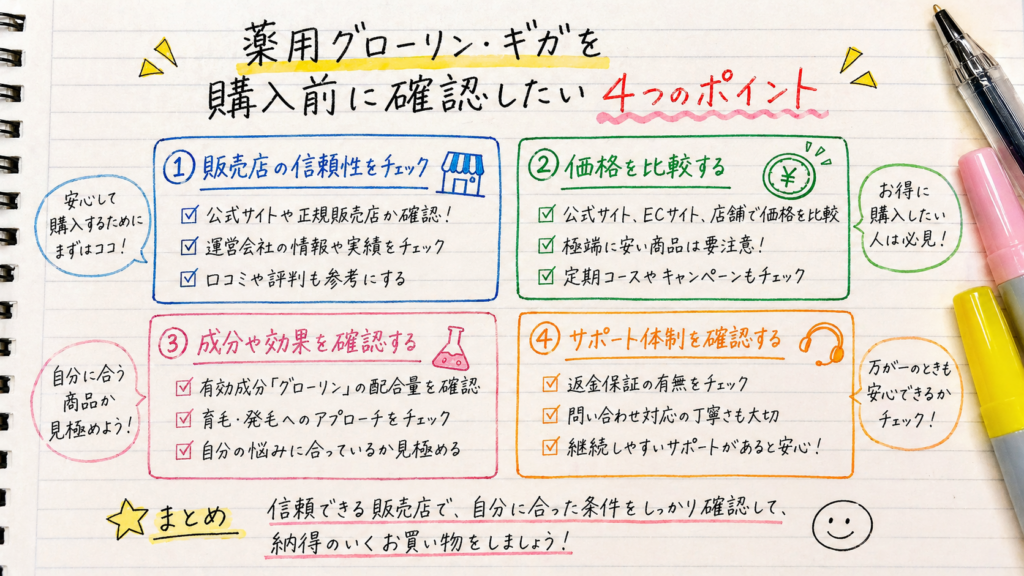 薬用グローリン・ギガを
購入前に確認したい 4つのポイント
安心して
購入するために
まずはココ！
① 販売店の信頼性をチェック
☑ 公式サイトや正規販売店か確認！
☑ 運営会社の情報や実績をチェック
☑ 口コミや評判も参考にする
② 価格を比較する
¥
☑ 公式サイト、ECサイト、店舗で価格を比較
☑ 極端に安い商品は要注意！
☑ 定期コースやキャンペーンもチェック
お得に
購入したい
人は必見！
自分に合う
商品か
見極めよう！
③ 成分や効果を確認する
☑ 有効成分「グローリン」の配合量を確認
☑ 育毛・発毛へのアプローチをチェック
☑ 自分の悩みに合っているか見極める
④ サポート体制を確認する
☑ 返金保証の有無をチェック
☑ 問い合わせ対応の丁寧さも大切
☑ 継続しやすいサポートがあると安心！
万が一のときも
安心できるか
チェック！
まとめ
信頼できる販売店で、自分に合った条件をしっかり確認して、
納得のいくお買い物をしましょう！